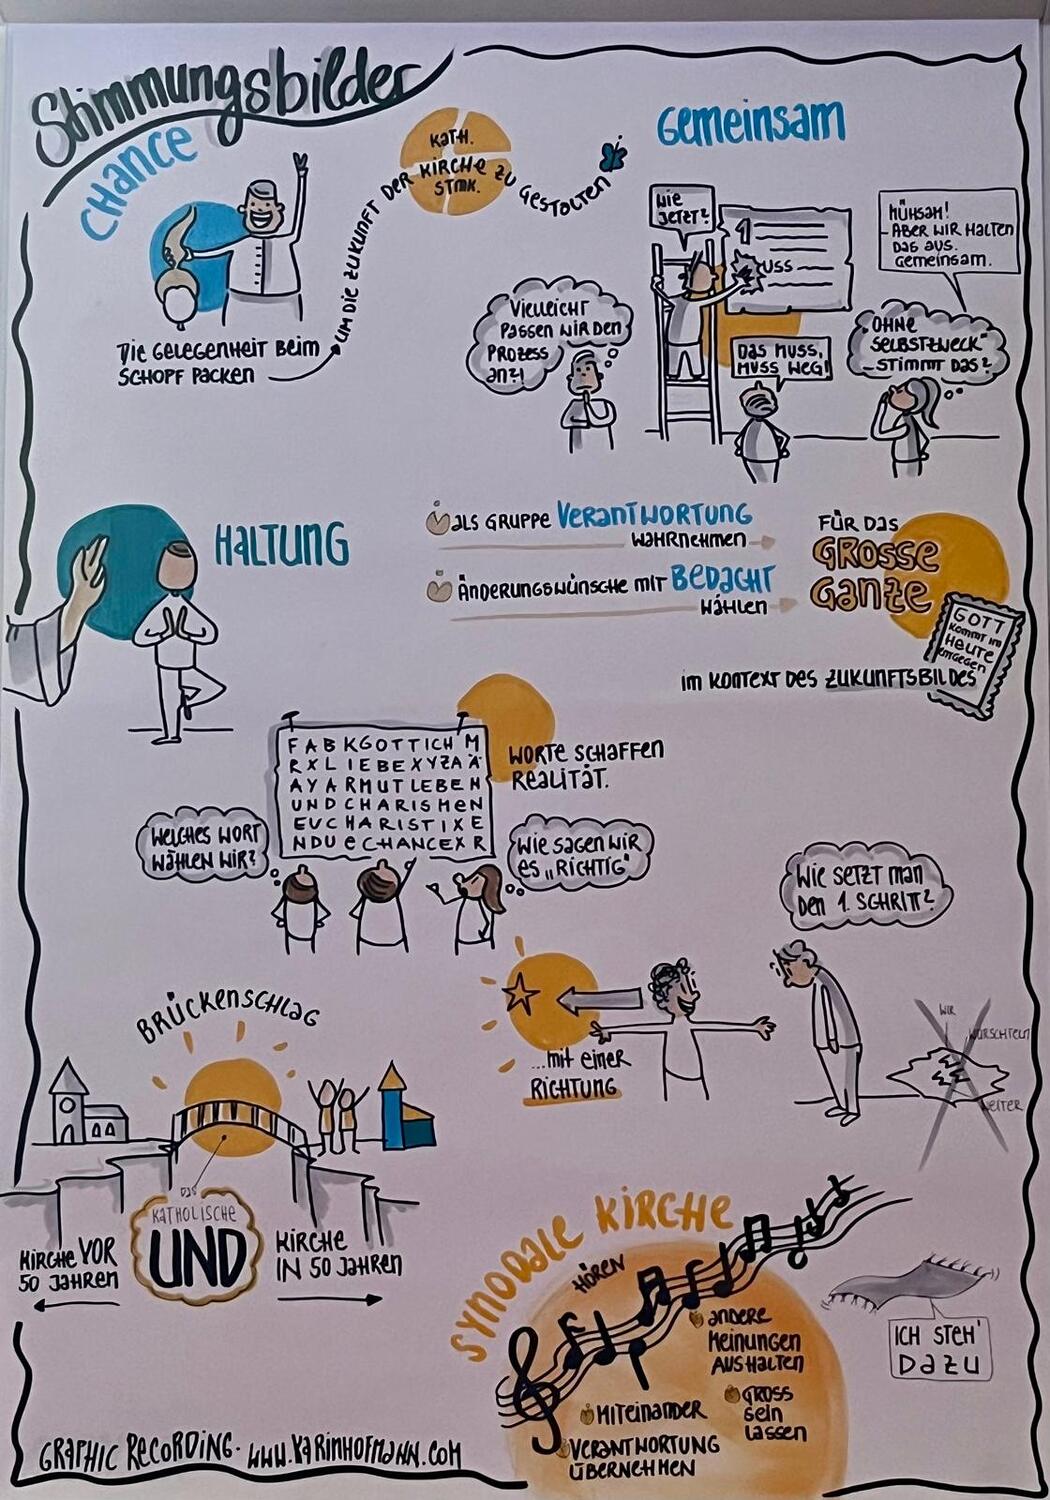 Stimmungsbilder
CHANCE
DIE GELEGENHEIT BEIM
SCHOPF PACKEN
UM DIE ZUKUNFT DER
KATH.
KIRCHE ZU
STMK.
GESTALTEN
GEMEINSAM
WIE
JETZT?
1
USS
MÜHSAM!
ABER WIR HALTEN
DAS AUS.
GEMEINSAM.
VIELLEICHT
PASSEN WIR DEN
PROZESS
AN?!
DAS MUSS,
MUSS WEG!
"OHNE
SELBSTZWECK"
- STIMMT DAS?
HALTUNG
ALS GRUPPE VERANTWORTUNG
WAHRNEHMEN
ÄNDERUNGSWÜNSCHE MIT BEDACHT
WÄHLEN
FÜR DAS
GROSSE
GANZE
GOTT
KOMMT IM
HEUTE
ENTGEGEN
IM KONTEXT DES ZUKUNFTSBILDES
FABKGOTTICHM
RXLIEBEXYZAÄ
AYARMUTLEBEN
UNDCHARISMEN
EUCHARISTIXE
NDUeCHANCEXR
WORTE SCHAFFEN
REALITÄT.
WELCHES WORT
WÄHLEN WIR?
WIE SAGEN WIR
ES „RICHTIG"
WIE SETZT MAN
DEN 1. SCHRITT?
...MIT EINER
RICHTUNG
WIR
WURSCHTELN
WEITER
BRÜCKENSCHLAG
DAS
KATHOLISCHE
UND
KIRCHE VOR
50 JAHREN
KIRCHE
IN 50 JAHREN
SYNODALE KIRCHE
HÖREN
ANDERE
MEINUNGEN
AUSHALTEN
GROSS
SEIN
LASSEN
MITEINANDER
VERANTWORTUNG
ÜBERNEHMEN
ICH STEH'
DAZU
GRAPHIC RECORDING · WWW.KARINHOFMANN.COM